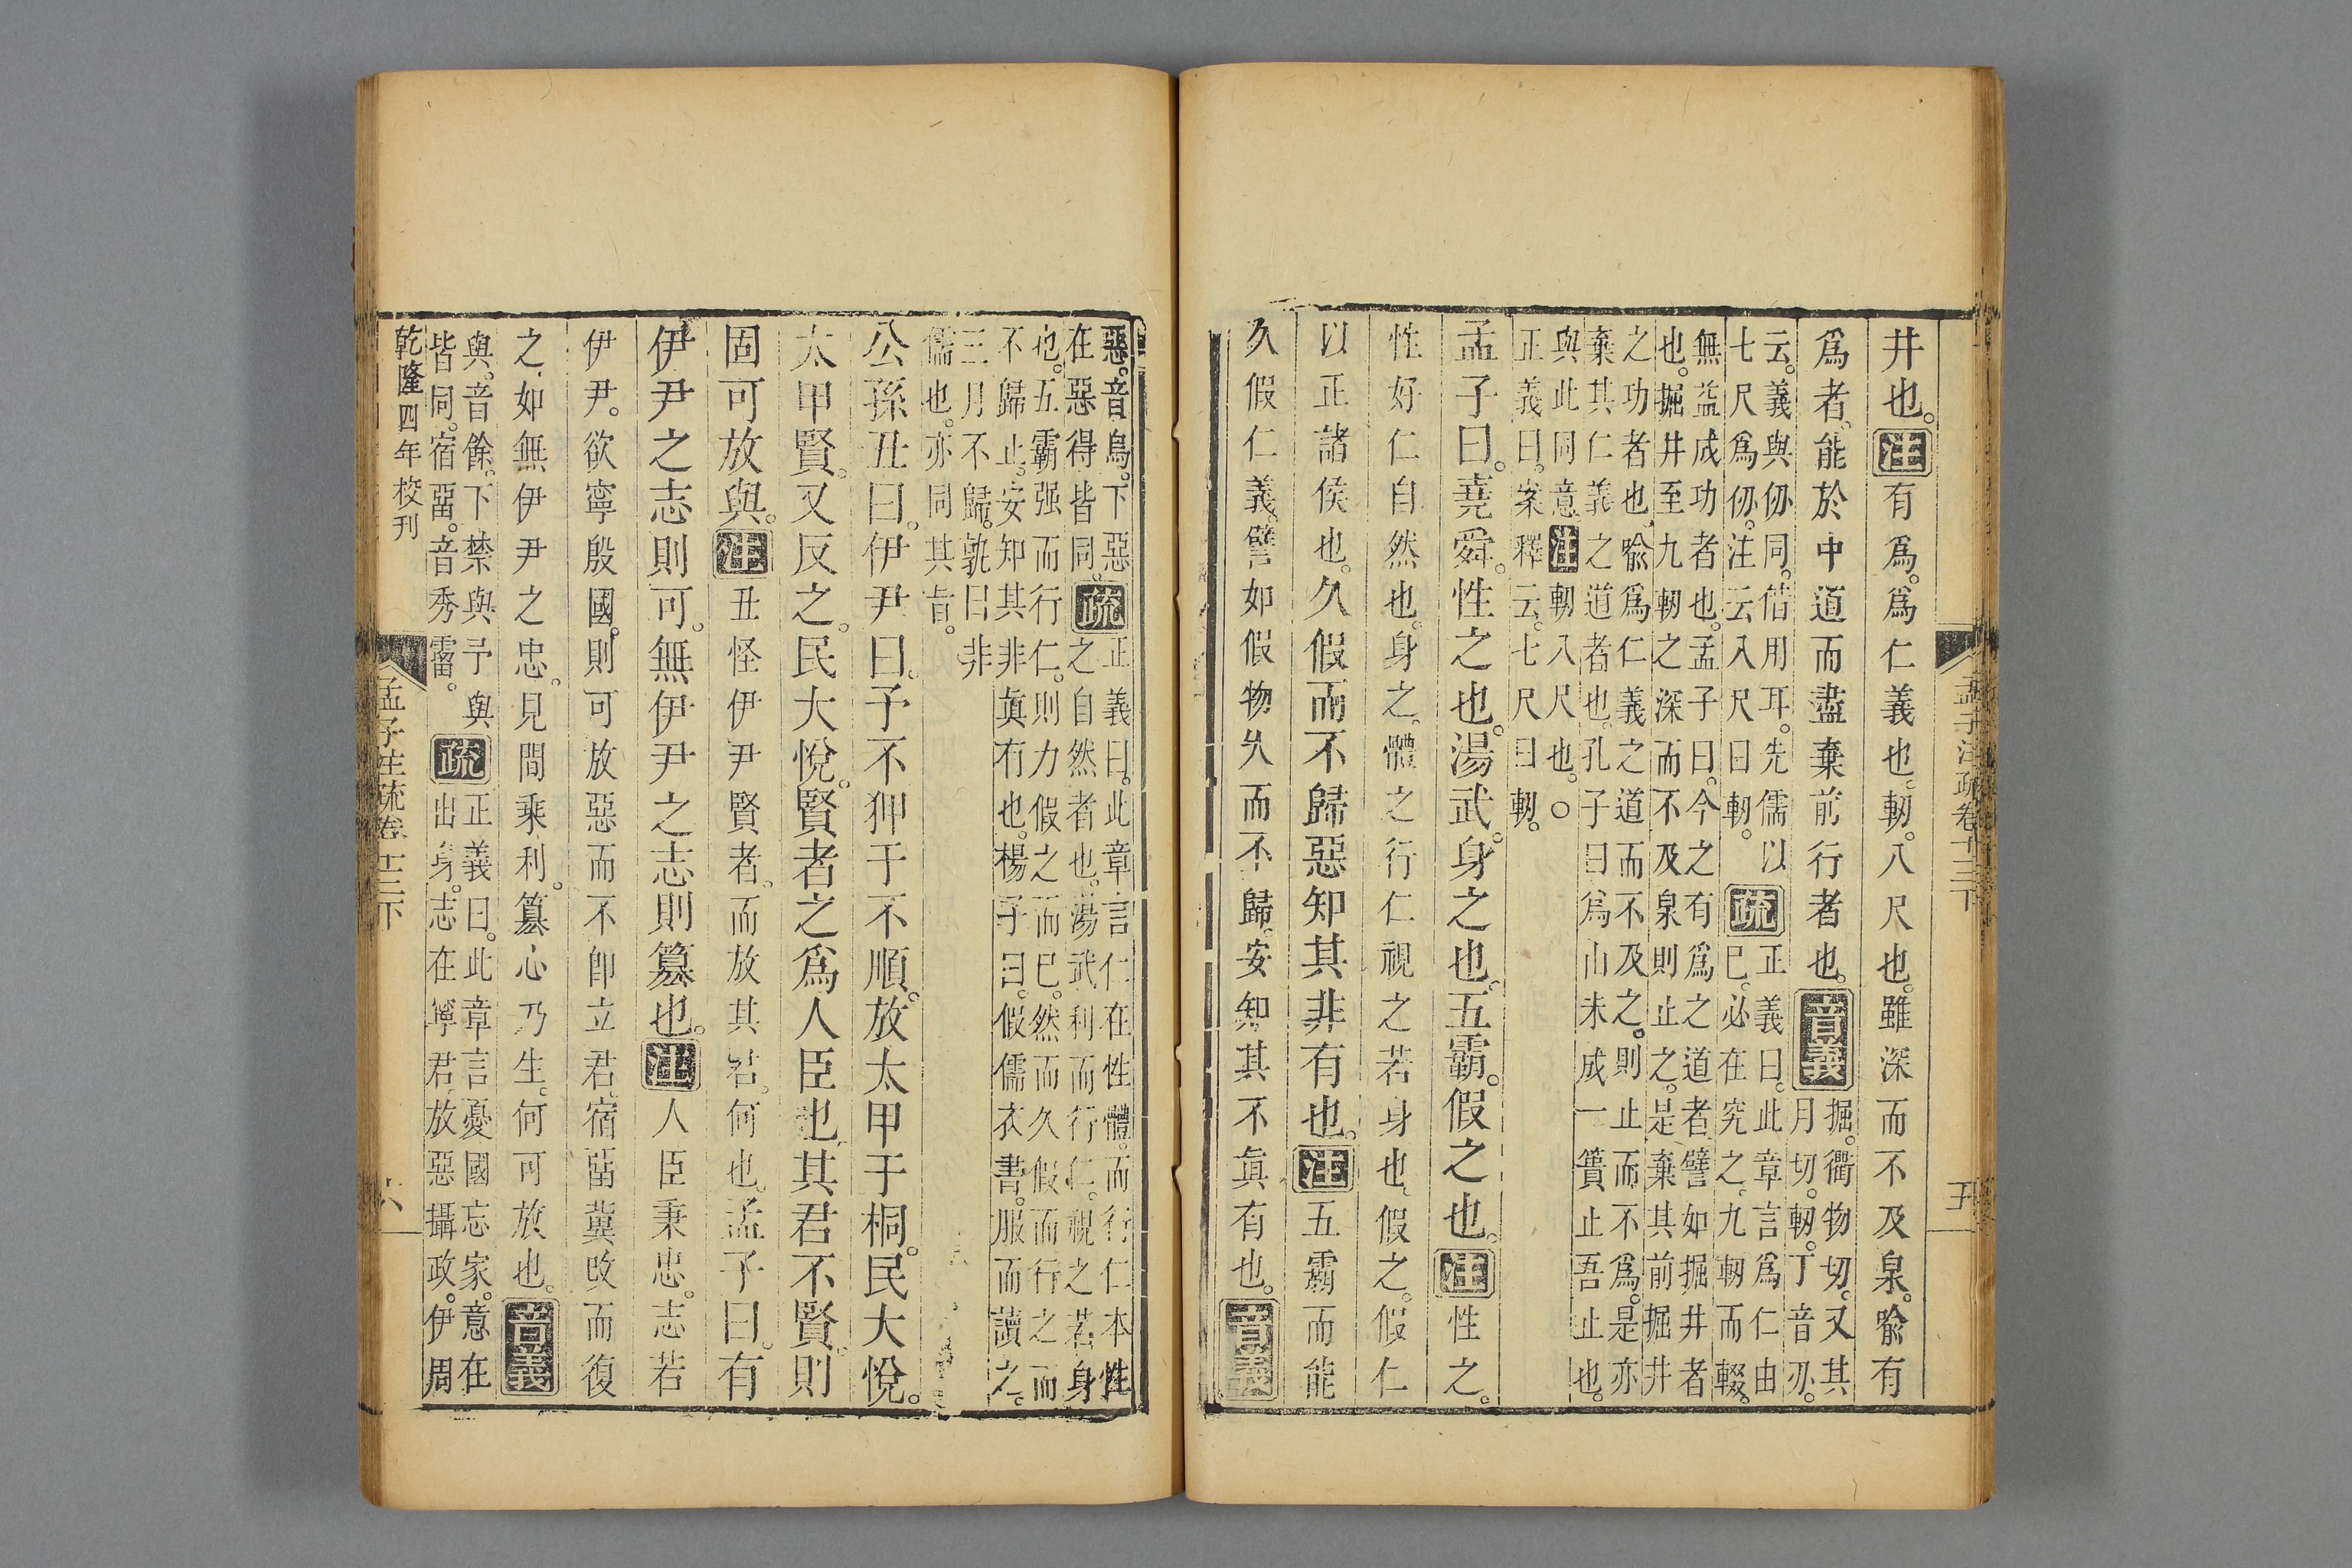 井也。注有爲。爲仁義也。軔。八尺也。雖深而不及泉。喩有
爲者。能於中道而盡棄前行者也。音義掘。衢物切。又其
月切。軔。丁音刃。
云。義與仞同。借用耳。先儒以
七尺爲仞。注云八尺曰軔。疏正義曰。此章言爲仁由
巳。必在究之。九軔而輟。
無益成功者也。孟子曰。今之有爲之道者譬如掘井者
也。掘井至九軔之深而不及泉則止之。是棄其前掘井
之功者也。喩爲仁義之道而不及之。則止而不爲。是亦
棄其仁義之道者也。孔子曰爲山未成一簣止吾止也。
與此同意注軔八尺也。○
正義曰。案釋云。七尺曰軔。
孟子曰。堯舜。性之也。湯武。身之也。五霸。假之也。注性之。
性好仁自然也。身之。體之行仁視之若身也。假之。假仁
以正諸侯也。久假而不歸惡知其非有也。注五霸而能
久假仁義。譬如假物久而不歸。安知其不眞有也。音義
孟子注疏卷十三下
五
惡。音烏。下惡
在惡得皆同。疏正義曰。此章言仁在性體。而行仁本性
之自然者也。湯武利而行仁。視之若身
也。五霸强而行仁。則力假之而巳。然而久假而行之而
不歸止。安知其非眞有也。楊子曰。假儒衣書。服而讀之。
三月不歸。孰曰非
儒也。亦同其旨。
公孫丑曰。伊尹曰。予不狎于不順。放太甲于桐。民大悅。
太甲賢。又反之。民大悅。賢者之爲人臣也。其君不賢。則
固可放與。注丑怪伊尹賢者。而放其君。何也。孟子曰。有
伊尹之志則可。無伊尹之志則簒也。注人臣秉忠。志若
伊尹。欲寧殷國。則可放惡而不卽立君。宿畱冀改而復
之。如無伊尹之忠。見間乘利。簒心乃生。何可放也。音義
與。音餘。下禁與予與
皆同。宿畱。音秀霤。疏正義曰。此章言憂國忘家。意在
出身。志在寧君。放惡攝政。伊周
乾隆四年校刊
孟子注疏卷十三下
六